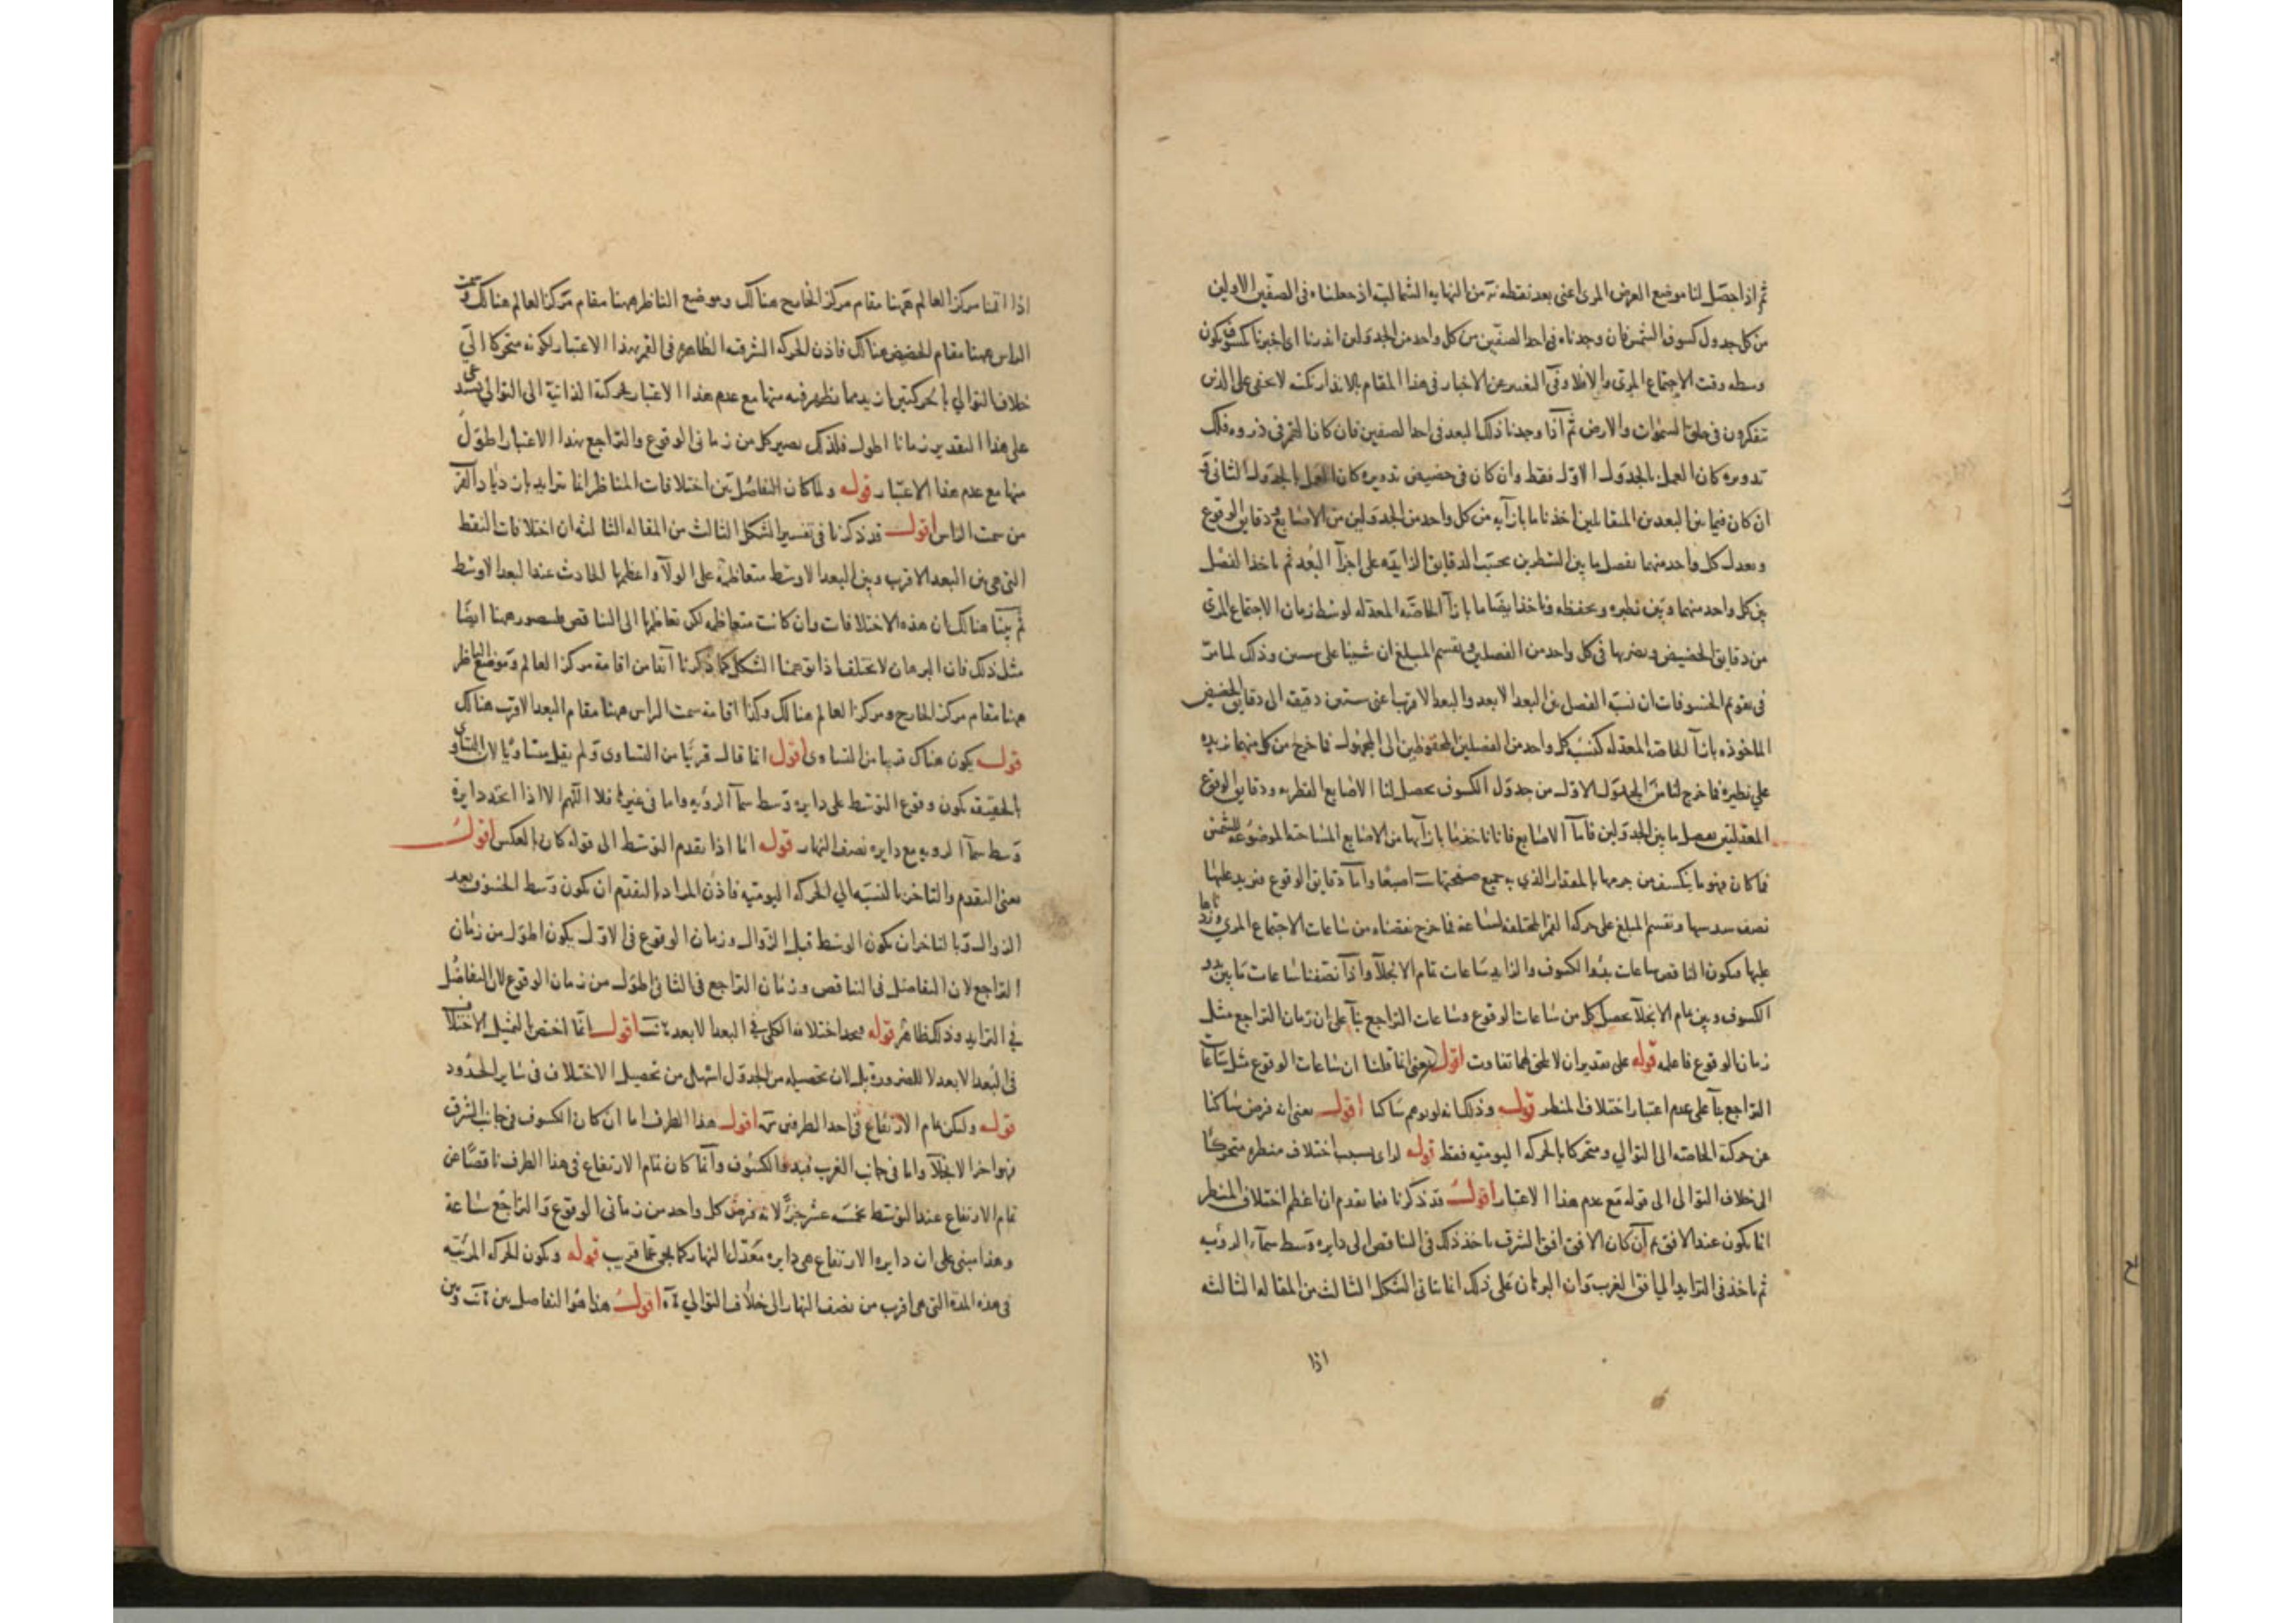 ثم اذا حصل لنا موضع العرض المرى اعنى بعد نقطه من النهايه الشماليه اذ جعلناه فى الصفين الاولين
من كل جدول كسوف الشمس فان وجدناه فى احد الصفين من كل واحد من الجدولين انذرنا اى اخبرنا بكسوف يكون
وسطه وقت الاجتماع المرى والا فلا وفى التعبير عن الاخبار فى هذا المقام بالانذار نكته لا تخفى على الذين
يتفكرون فى خلق السموات والارض ثم اذا وجدنا ذلك البعد فى احد الصفين فان كان القمر فى ذروه فلك
تدويره كان العمل بالجدول الاول فقط وان كان فى حضيض تدويره كان العمل بالجدول الثانى و
ان كان فيما بين البعدين المتقابلين اخذنا ما بازآيه من كل واحد من الجدولين من الاصابع و دقايق الوقوع
ونعدل كل واحد منهما بفصل ما بين السطرين بحسب الدقايق الزايده على اجزآ البعد ثم ناخذ الفضل
بين كل واحد منهما وبين نظيره ونحفظه وناخذ ايضا ما بازآ الخاصه المعدله لوسط زمان الاجتماع المرى
من دقايق الحضيض ونضربها فى كل واحد من الفصلين ونقسم المبلغ ان شينا على ستين وذلك لما مر
فى تقويم الخسوفات ان نسبه الفضل بين البعد الابعد والبعد الاقرب اعنى ستين دقيقه الى دقايق الحضيض
الماخوذه بازآ الخاصه المعدله كنسبه كل واحد من الفصلين المحفوظين الى المجهول فما خرج من كل منهما نزيده
على نظيره فما خرج لنا من الجدول الاول من جدول الكسوف يحصل لنا الاصابع القطريه ودقايق الوقوع
المعدلتين بفصل ما بين الجدولين فاما الاصابع فانا ناخذ ما بازآيها من الاصابع المساحيه الموضوعه للشمس
فما كان فهو ما ينكسف من جرمها بالمقدار الذى به جميع صفحتها اصبعا واما دقايق الوقوع فنزيد عليها
نصف سدسها ونقسم المبلغ على حركه القمر المختلفه لساعه فما خرج نقصناه من ساعات الاجتماع المرى وزدناها
عليها فيكون الناقص ساعات بدو الكسوف والزايد ساعات تمام الانجلآ واذا نصفنا ساعات ما بين بدو
الكسوف وبين تمام الانجلآ يحصل كل من ساعات الوقوع وساعات التراجع بنآ على ان زمان التراجع مثل
زمان الوقوع فاعلمه قوله على تقدير ان لا يلحقهما تفاوت اقول يعنى انما قلنا ان ساعات الوقوع مثل ساعات
التراجع بنآ على عدم اعتبار اختلاف المنظر قوله وذلك انه لو توهم ساكنا اقول يعنى انه فرض ساكنا
عن حركة الخاصه الى التوالي ومتحركا بالحركه اليوميه فقط قوله لراى بسبب اختلاف منظره متحركا
الى خلاف التوالى الى قوله مع عدم هذا الاعتبار اقول قد ذكرنا فيما تقدم ان اعظم اختلاف المنظر
انما يكون عند الافق ثم ان كان الافق افق الشرق ياخذ ذلك فى التناقص الى دايره وسط سمآء الرويه
ثم ياخذ فى التزايد الى افق الغرب وان البرهان على ذلك انما ياتى فى الشكل الثالث من المقاله الثالثه
اذا
اذا اقمنا مركز العالم ههنا مقام مركز الخارج هنالك وموضع الناظر ههنا مقام مركز العالم هنالك وسمت
الراس ههنا مقام الحضيض هنالك فاذن الحركه الشرقيه الظاهره فى القمر بهذا الاعتبار لكونه متحركا الى
خلاف التوالي بالحركتين ازيد مما يظهر فيه منها مع عدم هذا الاعتبار لحركته الذاتية الى التوالي فيستدعى
على هذا التقدير زمانا اطول فلذلك يصير كل من زمانى الوقوع والتراجع بهذا الاعتبار اطول
منها مع عدم هذا الاعتبار قوله ولما كان التفاضل بين اختلافات المناظر انما تتزايد بازدياد القرب
من سمت الراس اقول قد ذكرنا فى تفسير الشكل الثالث من المقاله الثالثه ان اختلافات النقط
التى هى بين البعد الاقرب وبين البعد الاوسط متعاظمه على الولآ واعظمها الحادث عند البعد الاوسط
ثم بينا هنالك ان هذه الاختلافات وان كانت متعاظمه لكن تعاظمها الى التناقص فليتصور ههنا ايضا
مثل ذلك فان البرهان لا يختلف اذا توهمنا الشكل كما ذكرنا آنفا من اقامة مركز العالم وموضع الناظر
ههنا مقام مركز الخارج ومركز العالم هنالك وكذا اقامه سمت الراس ههنا مقام البعد الاقرب هنالك
قوله يكون هناك قريبا من التساوى اقول انما قال قريبا من التساوى ولم يقل متساويا لان التساوى
بالحقيقه يكون وقوع التوسط على دايره وسط سمآ الرويه واما فى غيرها فلا اللهم الا اذا اتحد دايرة
وسط سمآ الرويه مع دايره نصف النهار قوله اما اذا تقدم التوسط الى قوله كان بالعكس اقول
معنى التقدم والتاخر بالنسبه الى الحركه اليوميه فاذن المراد بالتقدم ان يكون وسط الخسوف بعد
الزوال وبالتاخر ان يكون الوسط قبل الزوال وزمان الوقوع فى الاول يكون اطول من زمان
التراجع لان التفاضل فى التناقص وزمان التراجع فى الثانى اطول من زمان الوقوع لان التفاضل
في التزايد وذلك ظاهر قوله فيجد اختلافه الكلى في البعد الابعد اقول انما اختص التمثيل بالاختلاف
فى البعد الابعد لا للضرورة بل لان تحصيله من الجدول اسهل من تحصيل الاختلاف فى ساير الحدود
قوله وليكن تمام الارتفاع فى احد الطرفين اقول هذا الطرف اما ان كان الكسوف فى جانب الشرق
فهو اخر الانجلآ واما فى جانب الغرب فبدو الكسوف وانما كان تمام الارتفاع فى هذا الطرف ناقصا عن
تمام الارتفاع عند التوسط بخمسه عشر جزءا لانه فرض كل واحد من زمانى الوقوع والتراجع ساعة
وهذا مبنى على ان دايره الارتفاع هى دايره معدل النهار كما يجئ عما قريب قوله ويكون الحركه المرئيه
فى هذه المدة التى هى اقرب من نصف النهار الى خلاف التوالي اقول هذا هو التفاضل بين وبين